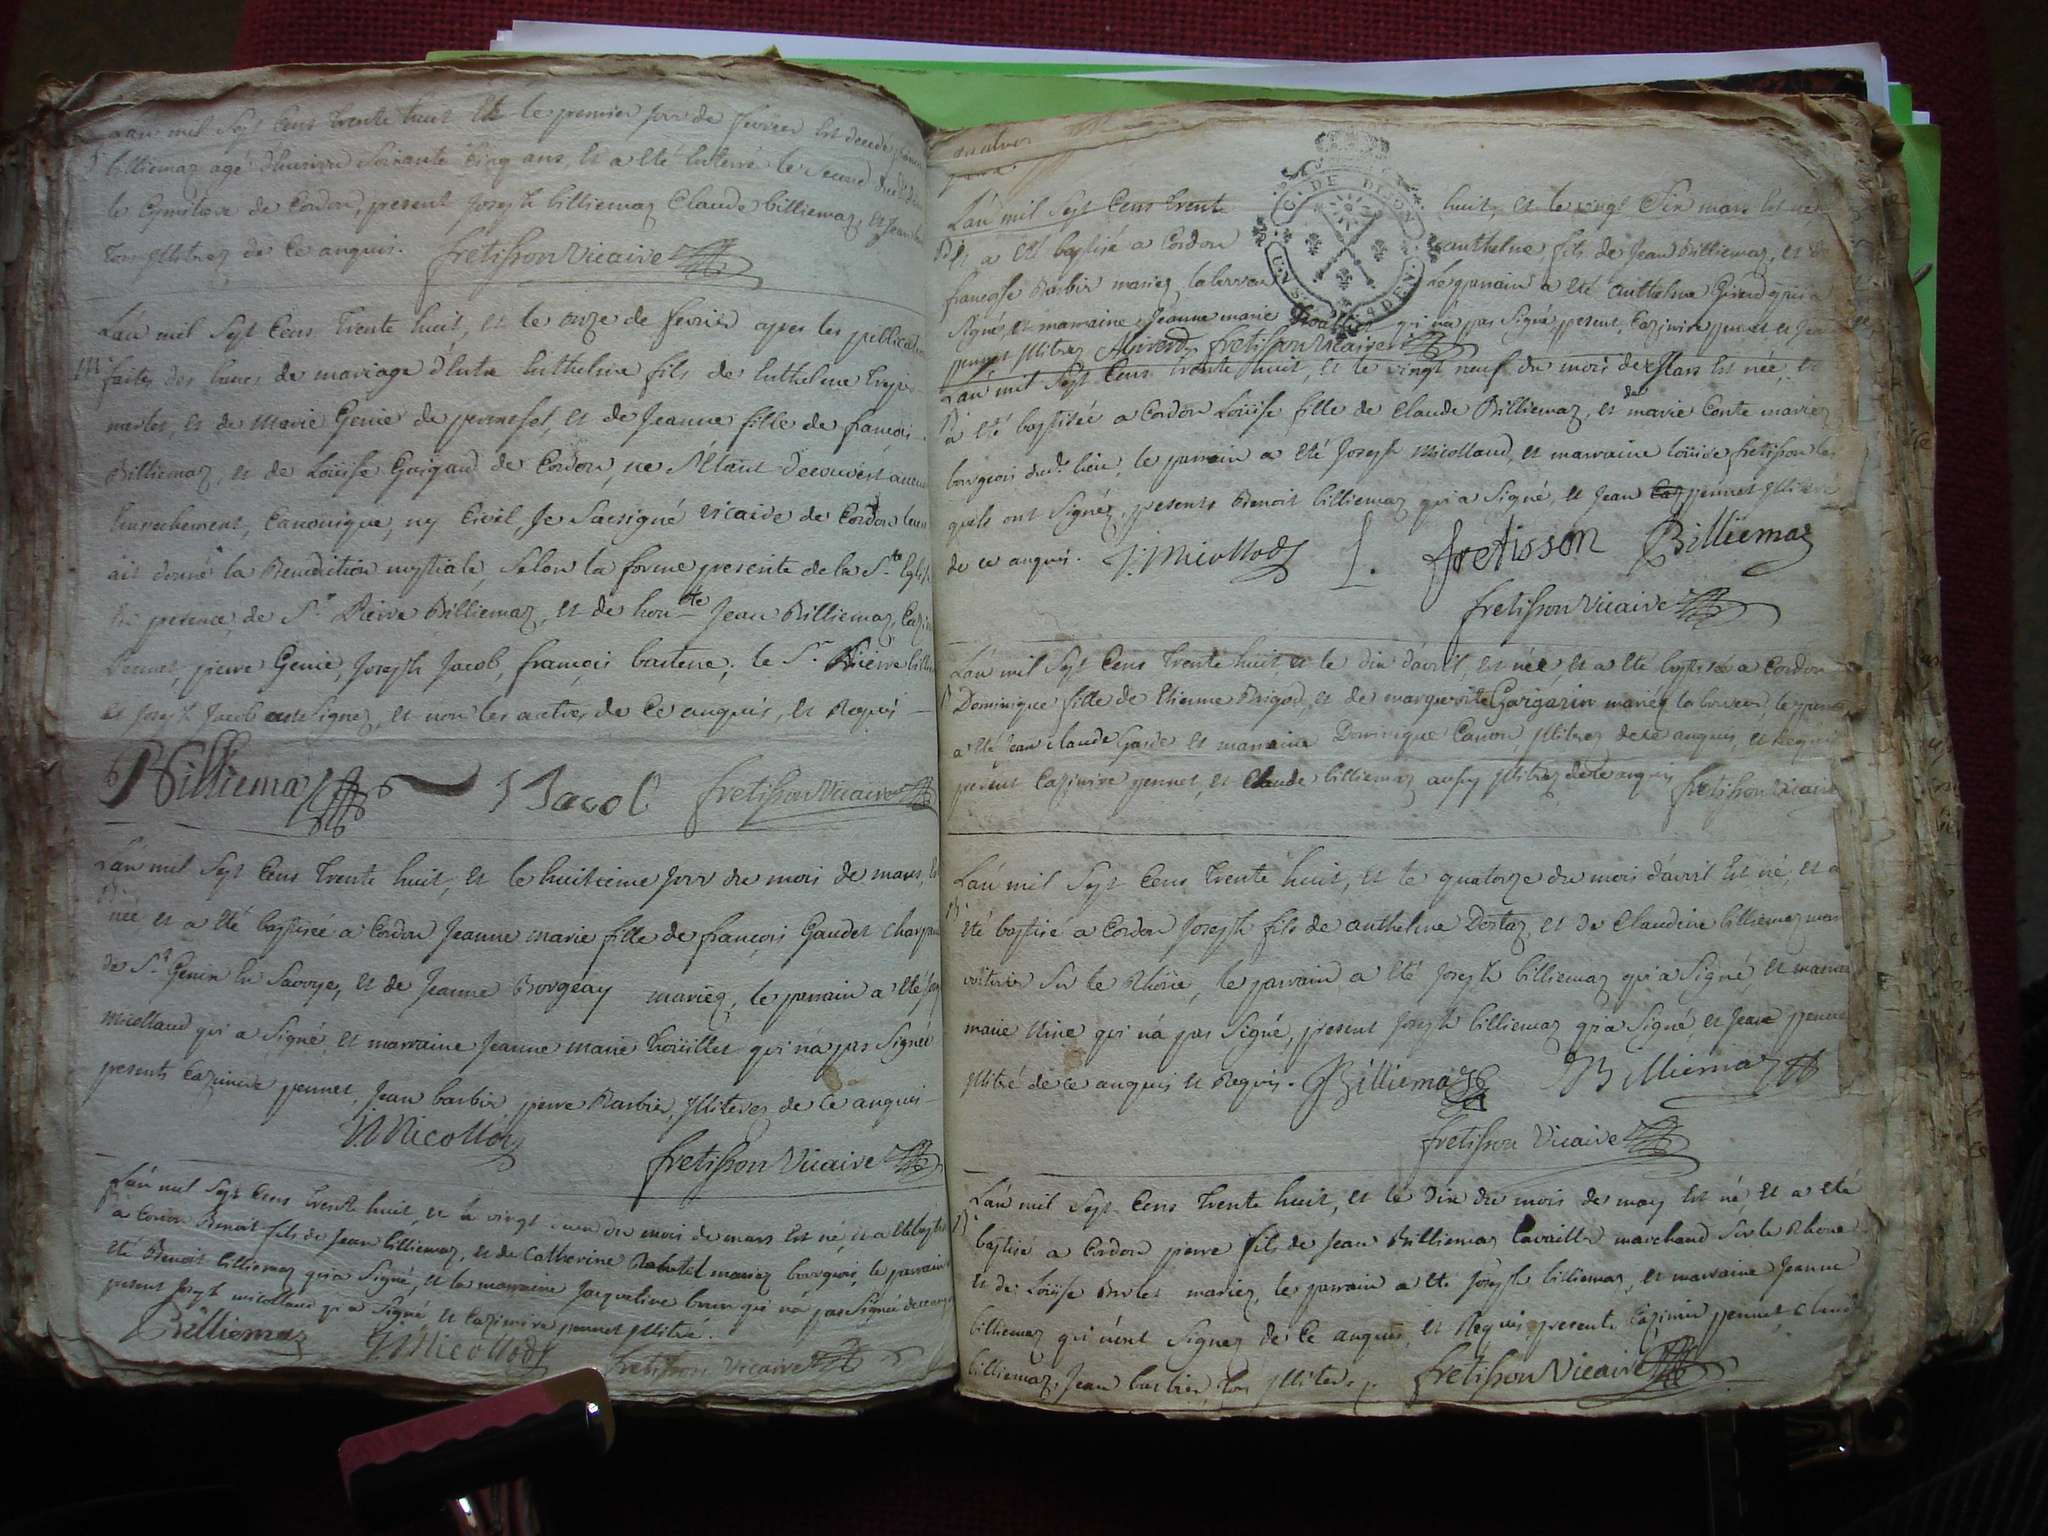 L'an mil Sept Cens trente huit et le premier jour de fevrier est decedé
billiemaz agé d'environ soixante cinq ans, et a été enterré le second dud. dans
le cymetiere de Cordon, present Joseph billiemaz Claude billiemaz, et Jean
tous illitrez de ce anquis. fretisson vicaire
L'an mil Sept Cens trente huit, et le onze de fevrier apres les publications
M faites des bancs de mariage d'entre Anthelme fils de Anthelme
et de Marie Genie de et de Jeanne fille de françois
Billiemaz, et de Loüise de Cordon, ne s'étant decouvert aucun
Empechement, Canonique, ny Civil, Je Sousigné vicaire de Cordon leur
ait donné la Benediction nuptiale, Selon la forme presente de la Ste Eglise
En presence de Sr Pierre Billiemaz, et de honte Jean Billiemaz,
pennet, pierre Genie, Joseph Jacob, françois le Sr Pierre
et Joseph Jacob ont Signez, et non les autres de ce anquis, et Requis
Billiemaz J Jacob fretisson vicaire
L'an mil Sept Cens trente huit, et le huitieme jour du mois de mars, est
B. née et a été baptisée a Cordon Jeanne marie fille de françois Gaudet
de St Genin en Savoye, et de Jeanne Borgeay mariez, le parrain a été
micolland qui a Signé, et marraine Jeanne marie Trouillet qui n'a pas Signée
presents Cazimire pennet, Jean barbier, pierre Barbier, illiterez de ce anquis
J. Micollod fretisson vicaire
L'an mil Sept Cens trente huit, et le vingt du mois de mars est né, et a été baptisé
B a Cordon Benoit fils de Jean billiemaz, et de Catherine mariez bourgeois, le parrain a
été Benoit billiemaz qui a Signé, et la marraine Jacqueline brun qui n'a pas Signée de ce anquis
present Joseph micolland qui a Signé, et Cazimire pennet illitré.
Billiemaz J. Micollod fretisson vicaire
L'an mil Sept Cens trente huit, et le vingt Six mars est né
B et a été baptisé a Cordon anthelme fils de Jean Billiemaz, et de
francoise Barbier mariez laboureurs le parrain a été anthelme Girerd qui a
Signé, et marraine Jeanne marie Trouillet qui n'a pas Signé, present, Cazimire pennet et Jean
pennet illitrez AGirerd fretisson vicaire
G. DE DIJON
L'an mil Sept Cens trente huit, et le vingt neuf du mois de Mars est née, et
B. a été baptisée a Cordon Loüise fille de Claude Billiemaz, et de marie Conte mariez
bourgeois dud. lieu, le parrain a été Joseph Micolland, et marraine loüise fretisson les
quels ont Signéz, presents Benoit billiemaz qui a Signé, et Jean pennet illitré
de ce anquis. J. Micollod L. fretisson Billiemaz
fretisson vicaire
L'an mil Sept Cens trente huit, et le dix d'avril, est née, et a été baptisée a Cordon
B Dominique fille de Etienne Brigod, et de marguerite Guigasin mariez laboureurs, le parrain
a été Jean claude Garde et marraine Dominique Canon, illitrez de ce anquis, et Requis
present Cazimire pennet, et Claude billiemaz aussy illitrez de ce anquis fretisson vicaire
L'an mil Sept Cens trente huit, et le quatorze du mois d'avril est né, et a
B. été baptisé a Cordon Joseph fils de anthelme Dortaz, et de Claudine billiemaz mariez
voiturier Sur le Rhône, le parrain a été Joseph billiemaz qui a Signé, et marraine
marie qui n'a pas Signé, present Joseph billiemaz qui a Signé, et Jean pennet
illitré de ce anquis et Requis. Billiemaz Billiemaz
fretisson vicaire
L'an mil Sept Cens trente huit, et le dix du mois de may est né, et a été
B. baptisé a Cordon pierre fils de Jean Billiemaz Cavaillo marchand Sur le Rhône
et de Loüise mariez, le parrain a été Joseph billiemaz, et marraine Jeanne
billiemaz qui n'ont Signez de ce anquis, et Requis, presents Cazimire pennet, claude
billiemaz, Jean barbier, tous illiterez. fretisson vicaire